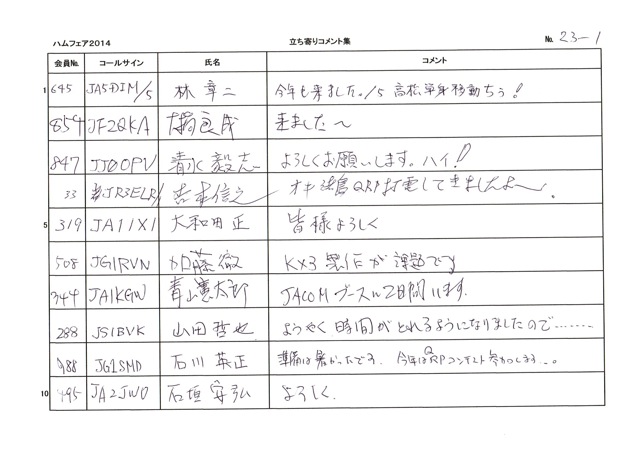 ハムフェア2014 立ち寄りコメント集 No. 23-1
会員No. コールサイン 氏名 コメント
1 645 JA5DIM/5 林 章二 今年も来ました。/5 高松単身移動ちう!
854 JF2QKA 良成 来ました〜
847 JJ0OPV 清水 毅志 よろしくお願いします。ハイ!
33 JR3ELR/ 吉本信之 QRP打電してきましたよ〜。
5 319 JA1IXI 大和田 正 皆様よろしく
508 JG1RVN 加藤 徹 KX3 が課題です
344 JA1KGW 青山憲太郎 JACOMブースに2日間います.
288 JS1BVK 山田 哲也 ようやく時間がとれるようになりましたので.......
988 JG1SMD 石川 英正 準備は暑かったです. 今年はQRPコンテスト参加します...
10 495 JA2JWO 石垣 安弘 よろしく.